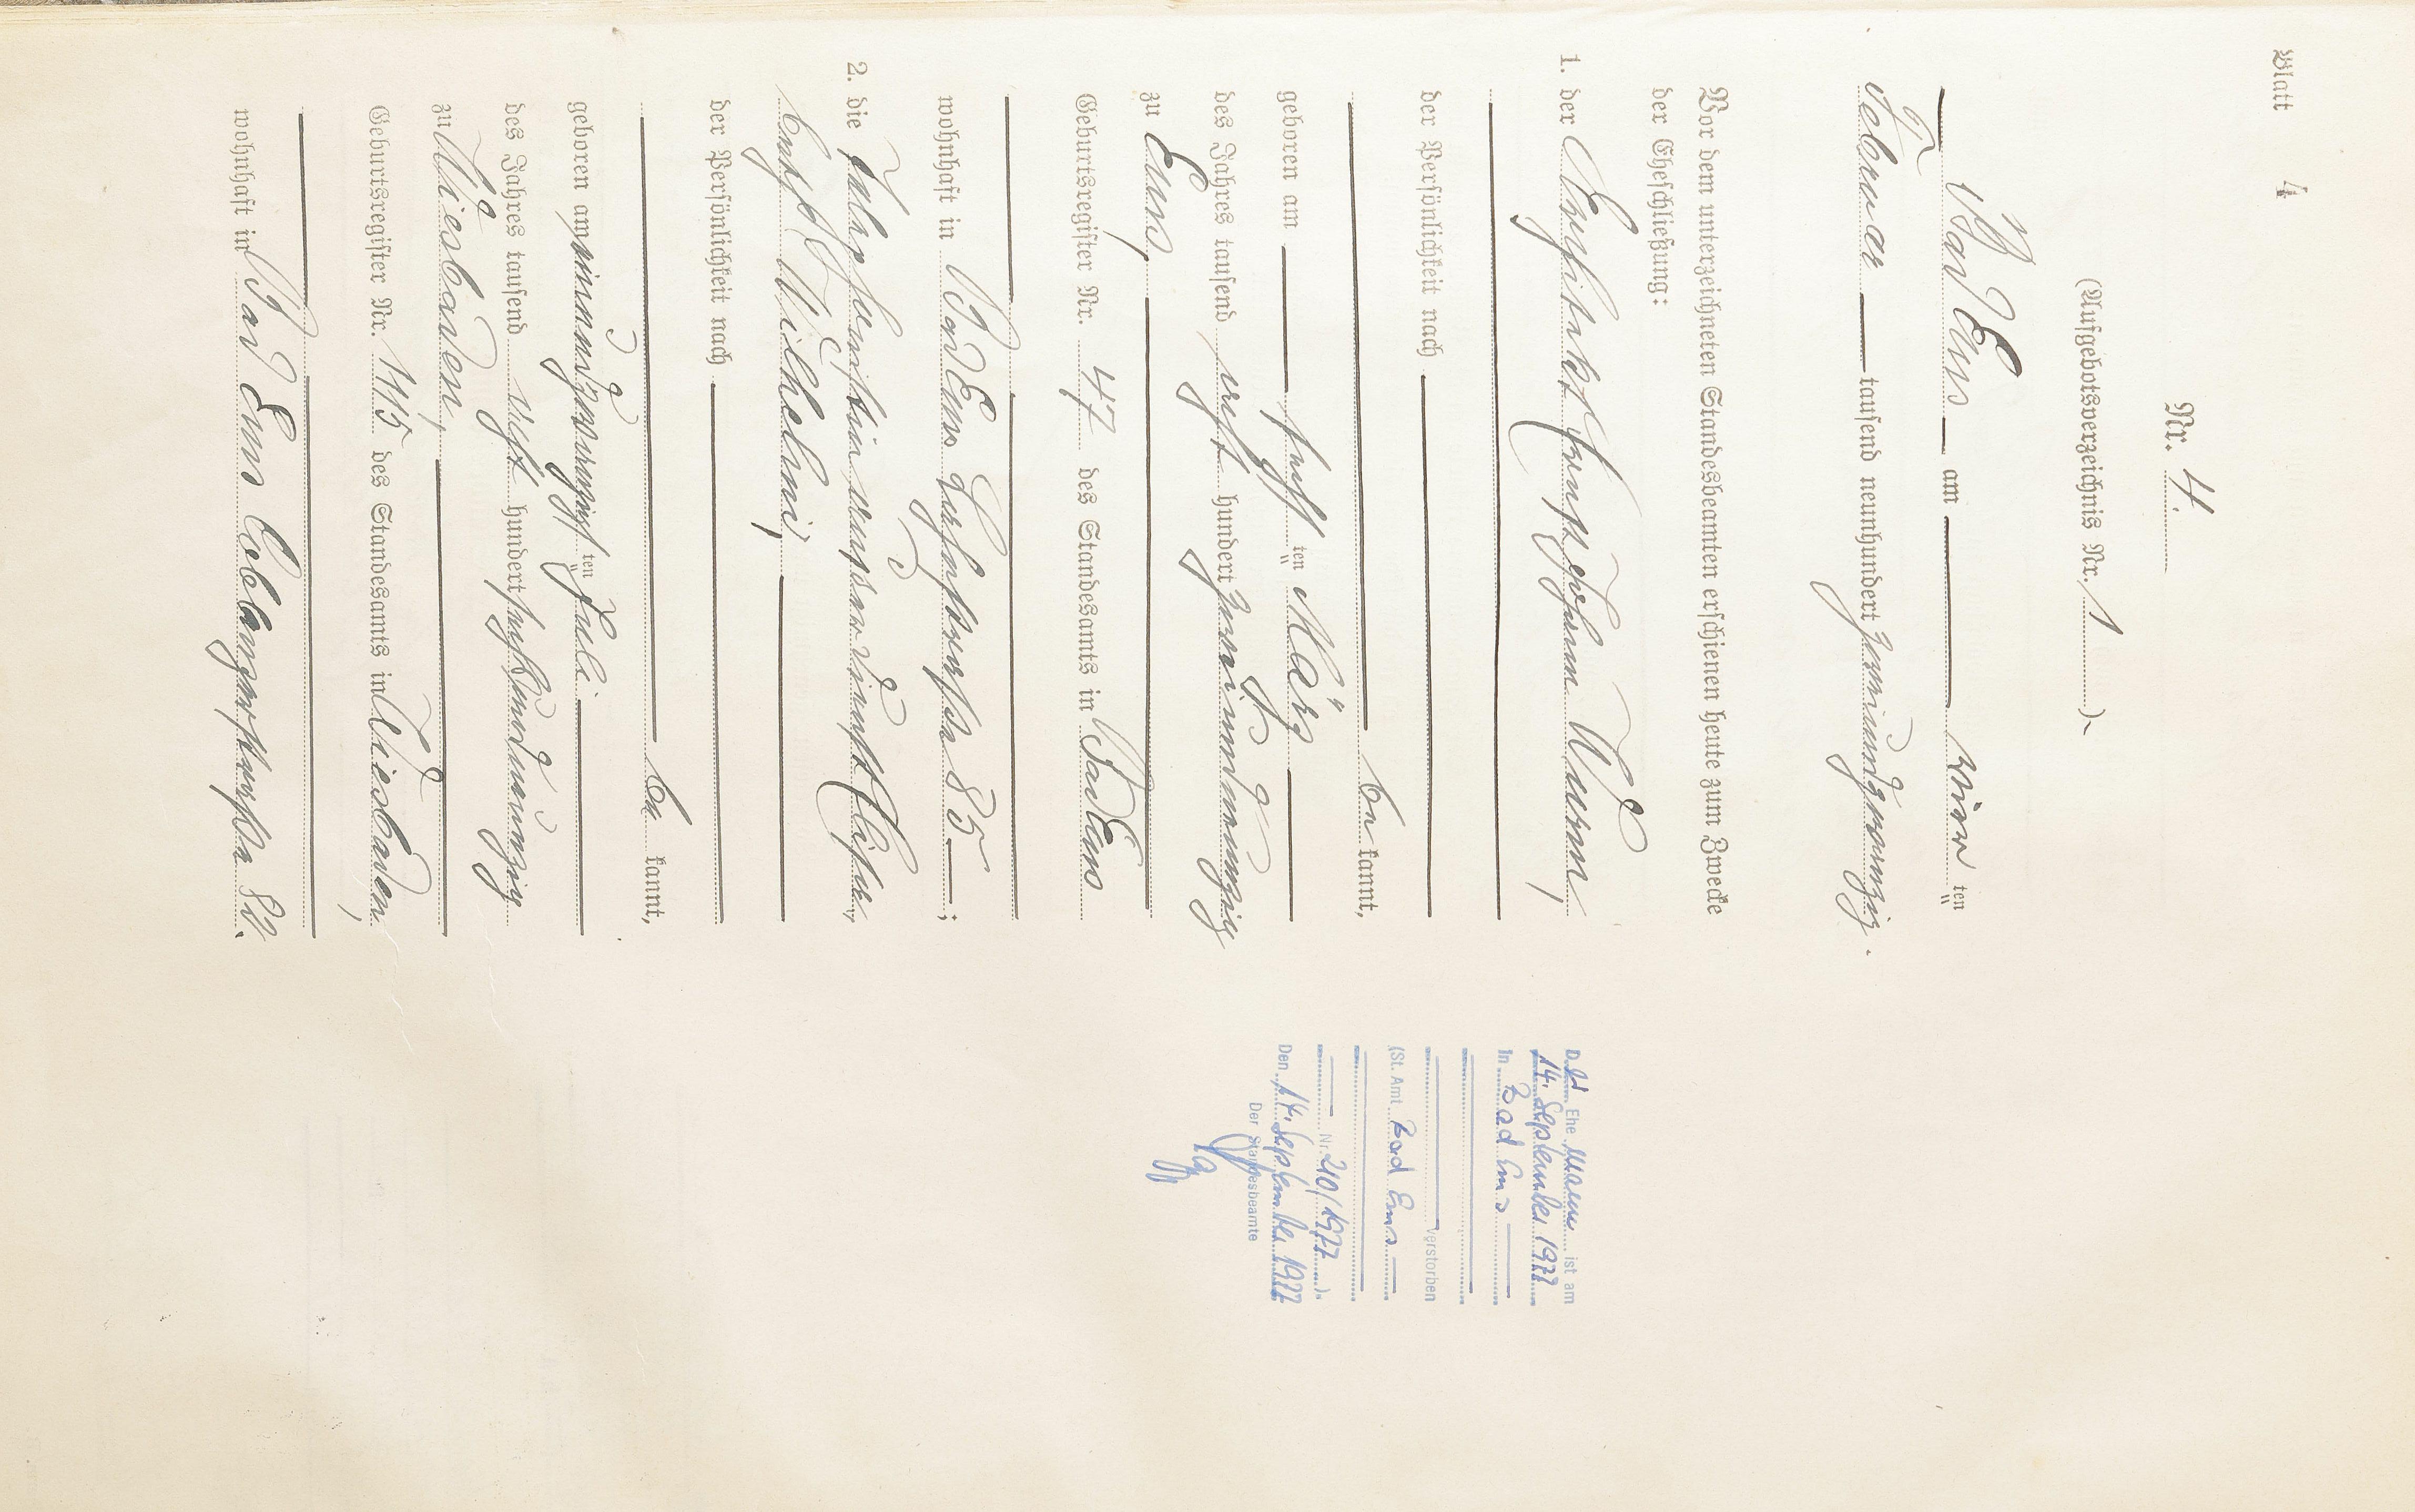 Blatt 4
Nr. 4.
(Aufgebotsverzeichnis Nr. 1).
Bad Ems am vier ten
Februar tausend neunhundert zweiundzwanzig.
Vor dem unterzeichneten Standesbeamten erschienen heute zum Zwecke
der Eheschließung:
1. der Architekt Wurm,
der Persönlichkeit nach
be kannt,
geboren am fünf ten März
des Jahres tausend acht hundert zweiundneunzig
zu Ems,
Geburtsregister Nr. 47 des Standesamts in Bad Ems
wohnhaft in Bad Ems Lahnstraße 85;
2. die
Wilhelmi,
der Persönlichkeit nach
be kannt,
geboren am einundzwanzigs ten Juli
des Jahres tausend acht hundert sechsundneunzig
zu Wiesbaden,
Geburtsregister Nr. 1115 des Standesamts in Wiesbaden,
wohnhaft in Bad Ems Coblenzerstraße
Der Ehe Mann ist am
14. September 1977
in Bad Ems
verstorben
(St. Amt Bad Ems
Nr. 210/1977).
Den 14. September 1977
Der Standesbeamte